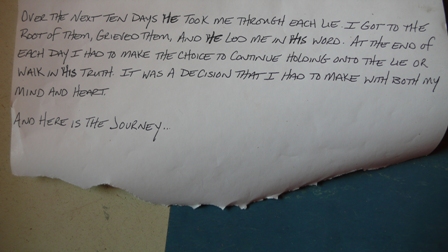 OVER THE NEXT TEN DAYS HE TOOK ME THROUGH EACH LIE I GOT TO THE
ROOT OF THEM, GRIEVED THEM, AND HE LED ME IN HIS WORD. AT THE END OF
EACH DAY I HAD TO MAKE THE CHOICE TO CONTINUE HOLDING ONTO THE LIE OR
WALK IN HIS TRUTH. IT WAS A DECISION THAT I HAD TO MAKE WITH BOTH MY
MIND AND HEART.
AND HERE IS THE JOURNEY...